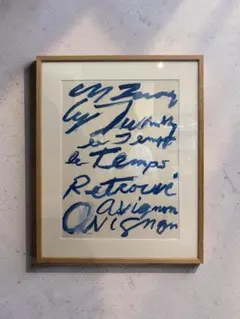 Cy Twombly
le Temps
le Temps
Retrouvé
avignon
Avignon